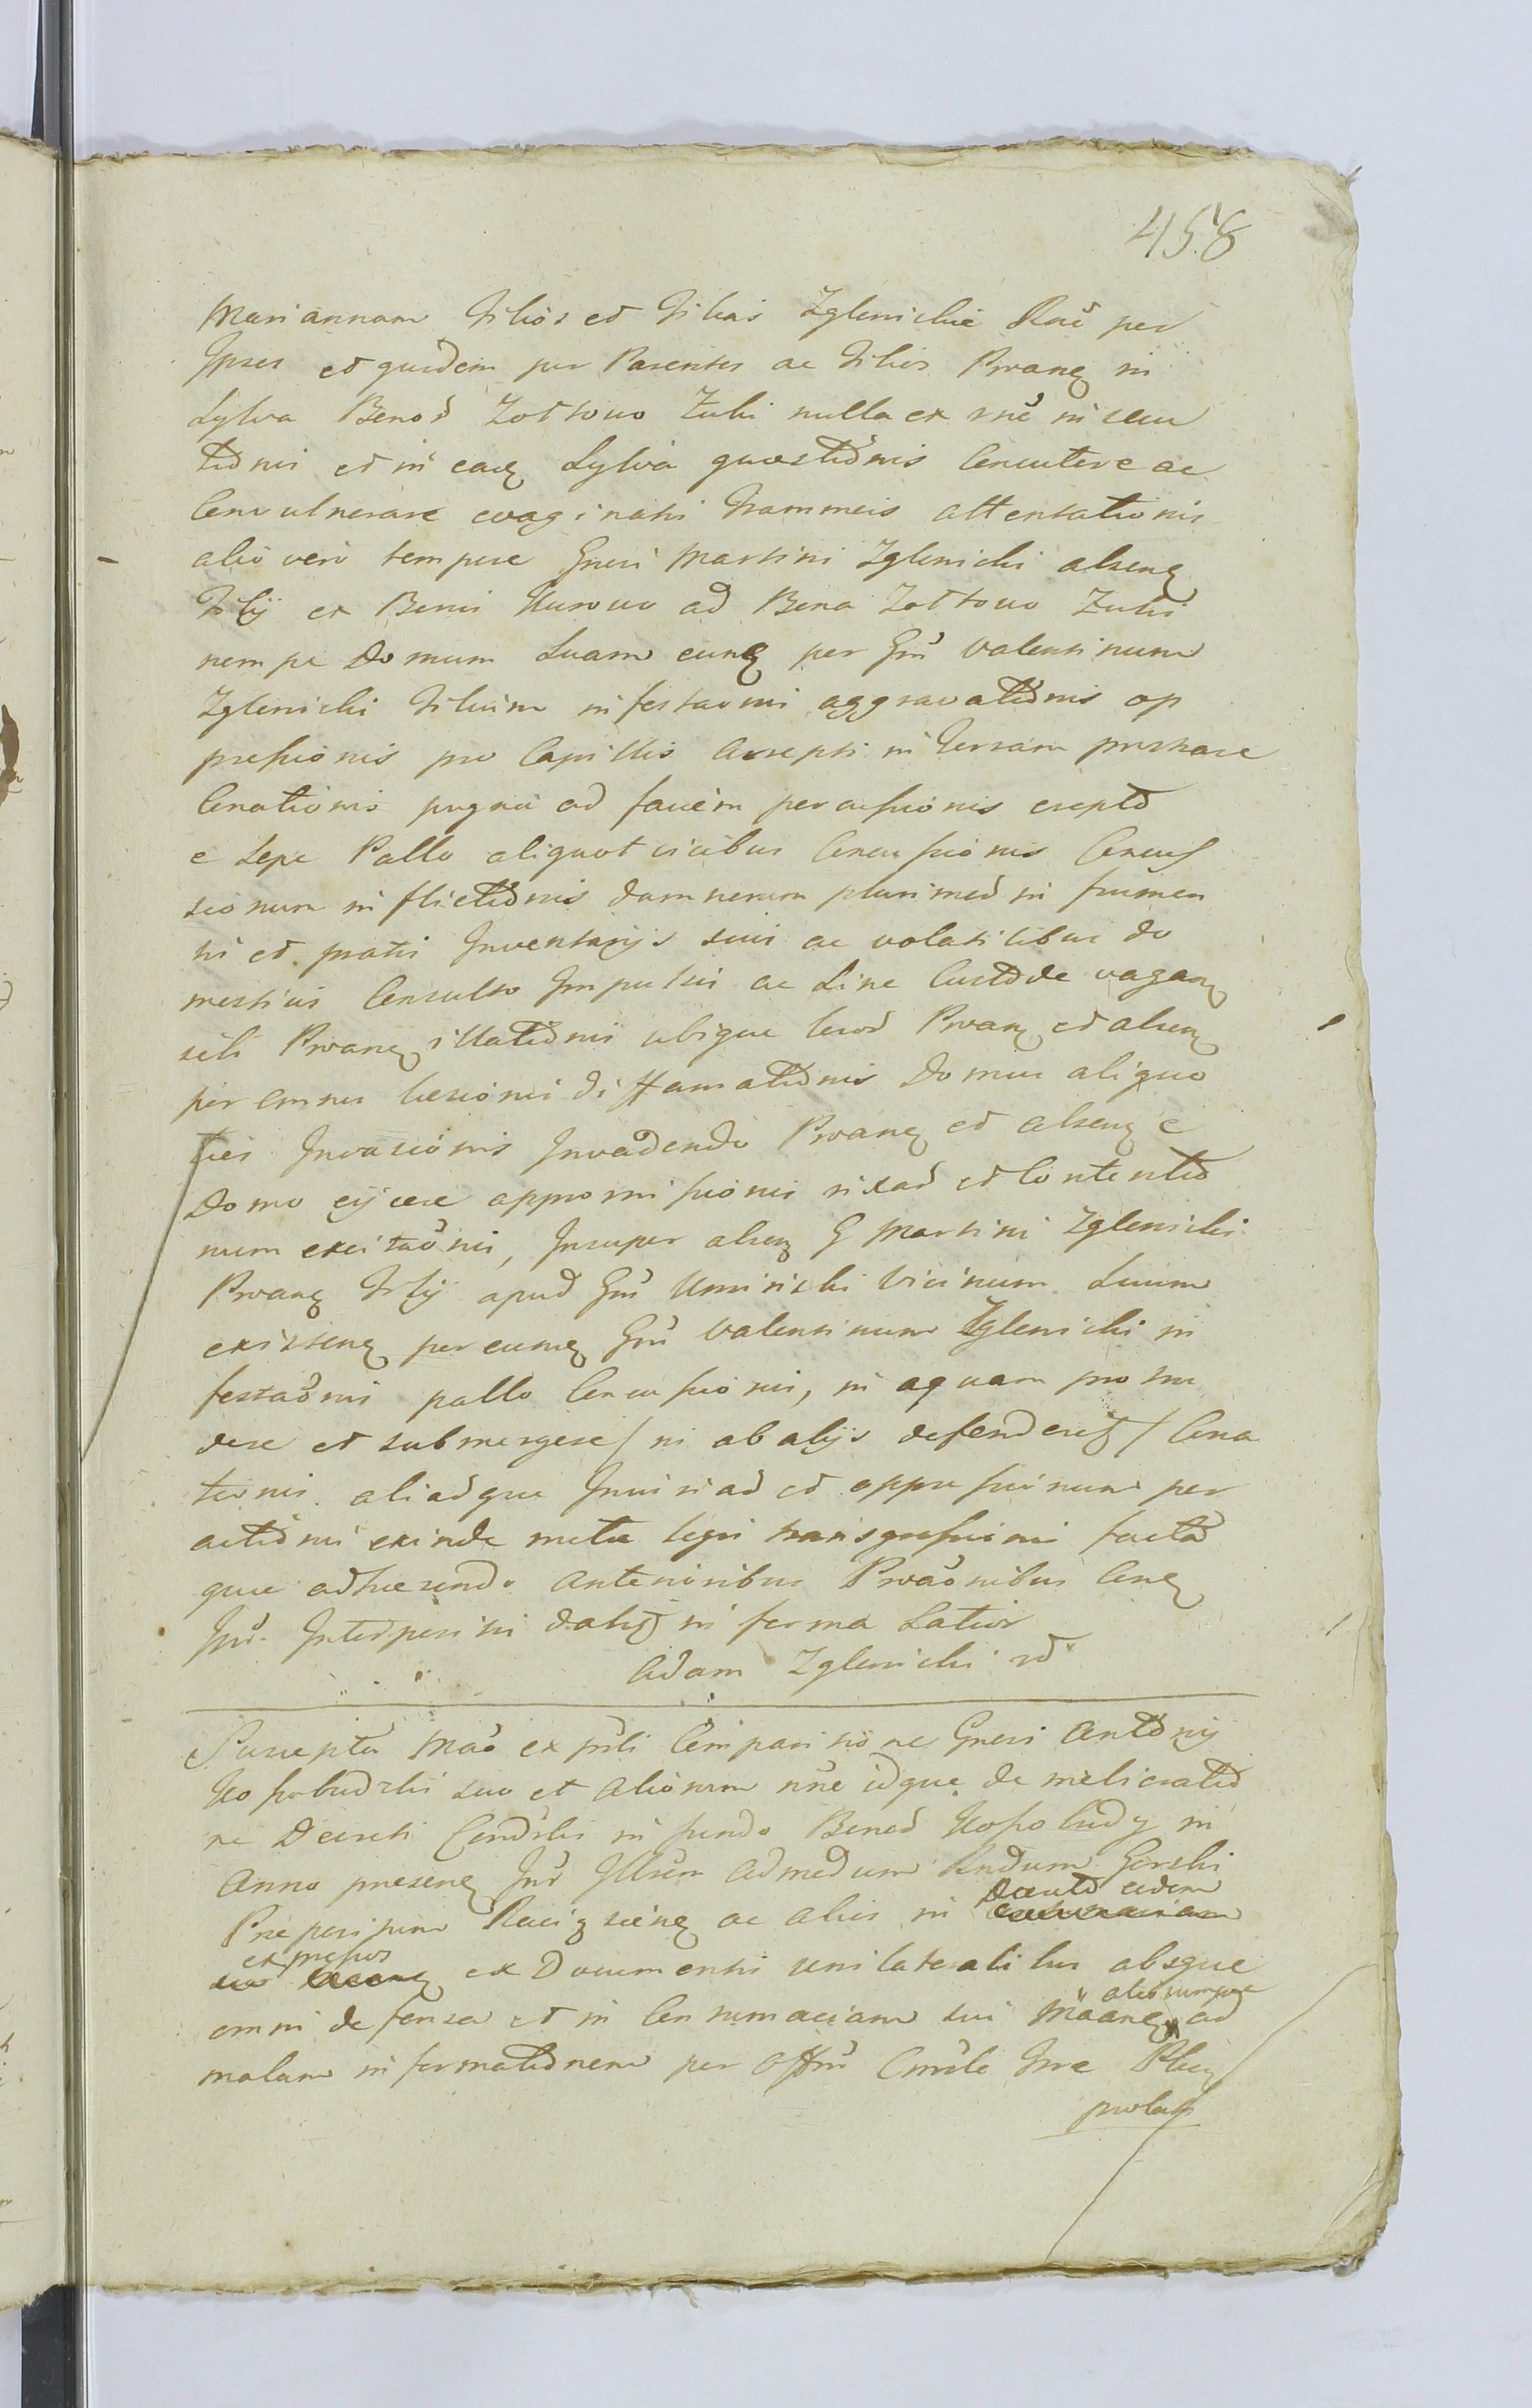 458
Mariannam Filios et Filias Zglenickie Rnē per
Ipsos et quidem per Parentes ac Filios Pwanę in
Sylva Bonoȓ Zottowo Zuki nulla ex rnē in secu
tiōnis et in eadę Sylva quaestiōnis Concutere ac
Convulnerare evaginatis Frammeis attentationis
alio vero tempore Gnesi Martini Zglenicki absenę
Filij ex Bonis Kurowo ad Bona Zottowo Zuki
nempe Domum Suam eunę per Gnū Valentinum
Zglenicki Filium infestaōnis aggravatiōnis op
pressionis pro Capillis Arrepti in Terram prostrare
Conationis pugna ad faciem percussionis erepto
e Sepe Pallo aliquot icibus Concussionis Concus
sionum inflictiōnis damnorum plurimoȓ in frumen
tis et pratis Inventarijs suis ac volatilibus do
mesticis Consulto Impulsis ac Sine Custode vaganę
sibi Pwanę illatiōnis ubique locoȓ Pwanę et absenę
per omnes laesionis diffamatiōnis Domus aliquo
ties Invasionis Invadendo Pwanę et absenę e
Domo eijcere appromissionis rixaȓ et Contentio
num excitaōnis, Insuper absenę G Martini Zglenicki
Pwanę Filij apud Gnū Uminski Vicinum Suum
existenę per eumę Gnū Valentinum Zglenicki in
festaōnis pallo Concussionis, in aquam protru
dere et submergere / ni ab alijs defenderet / Cona
tionis aliaȓque Iniuriaȓ et oppressionum per
actiōnis exinde metae legis transgressionis facta
que adhaerendo Anterioribus Pwaōnibus Conę
Jur. Interpositis datę in forma Latior
Adam Zglenicki rd

Suscepta Māo ex prśti Comparitione Gnesi Antonij
Kossobudzki suo et aliorum nnē idque de melioratio
ne Decreti Condrlis in fundo Bonoȓ Kossobudy in
Anno praesenę Inr Illrēm Admodum Rndum Gorski
Praepositum Raciązcenę ac alios in Decreto eodem
expressos ex Documentis unilateralibus absque
omni defensa et in Contumaciam sui Mānę aliorumque ad
malam informatiōnem per Offrū Cmsle Tre Plocę
prolati